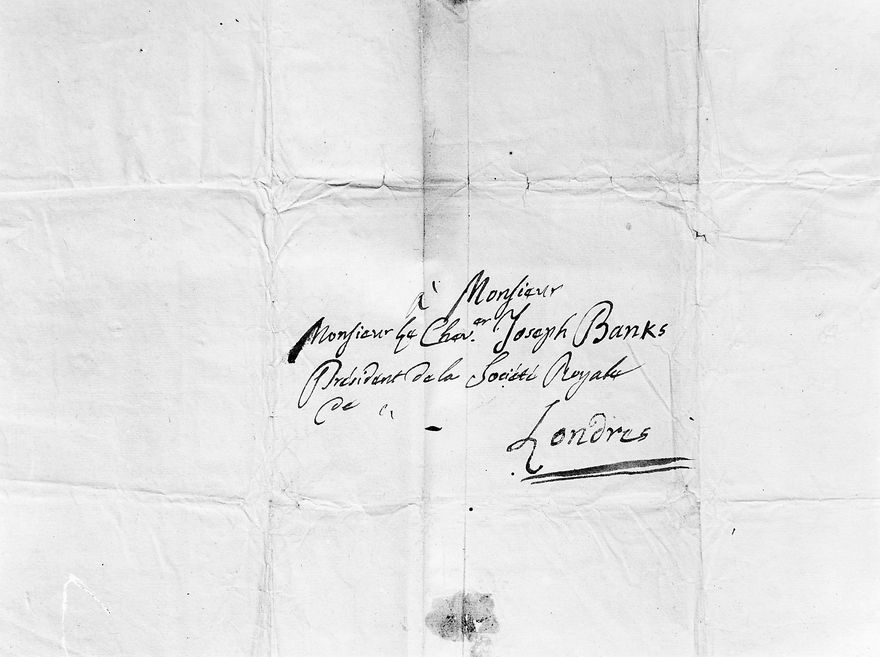 à Monsieur
Monsieur Le Chev.er Joseph Banks
Président de la Société Royale
de
Londres